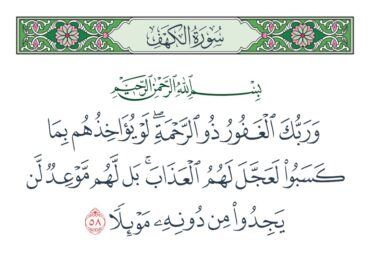 سُورَةُ الكَهْفِ
بِسْمِ ٱللَّهِ ٱلرَّحْمَٰنِ ٱلرَّحِيمِ
وَرَبُّكَ ٱلْغَفُورُ ذُو ٱلرَّحْمَةِ ۖ لَوْ يُؤَاخِذُهُم بِمَا
كَسَبُوا۟ لَعَجَّلَ لَهُمُ ٱلْعَذَابَ ۚ بَل لَّهُم مَّوْعِدٌ لَّن
يَجِدُوا۟ مِن دُونِهِۦ مَوْئِلًا ٥٨